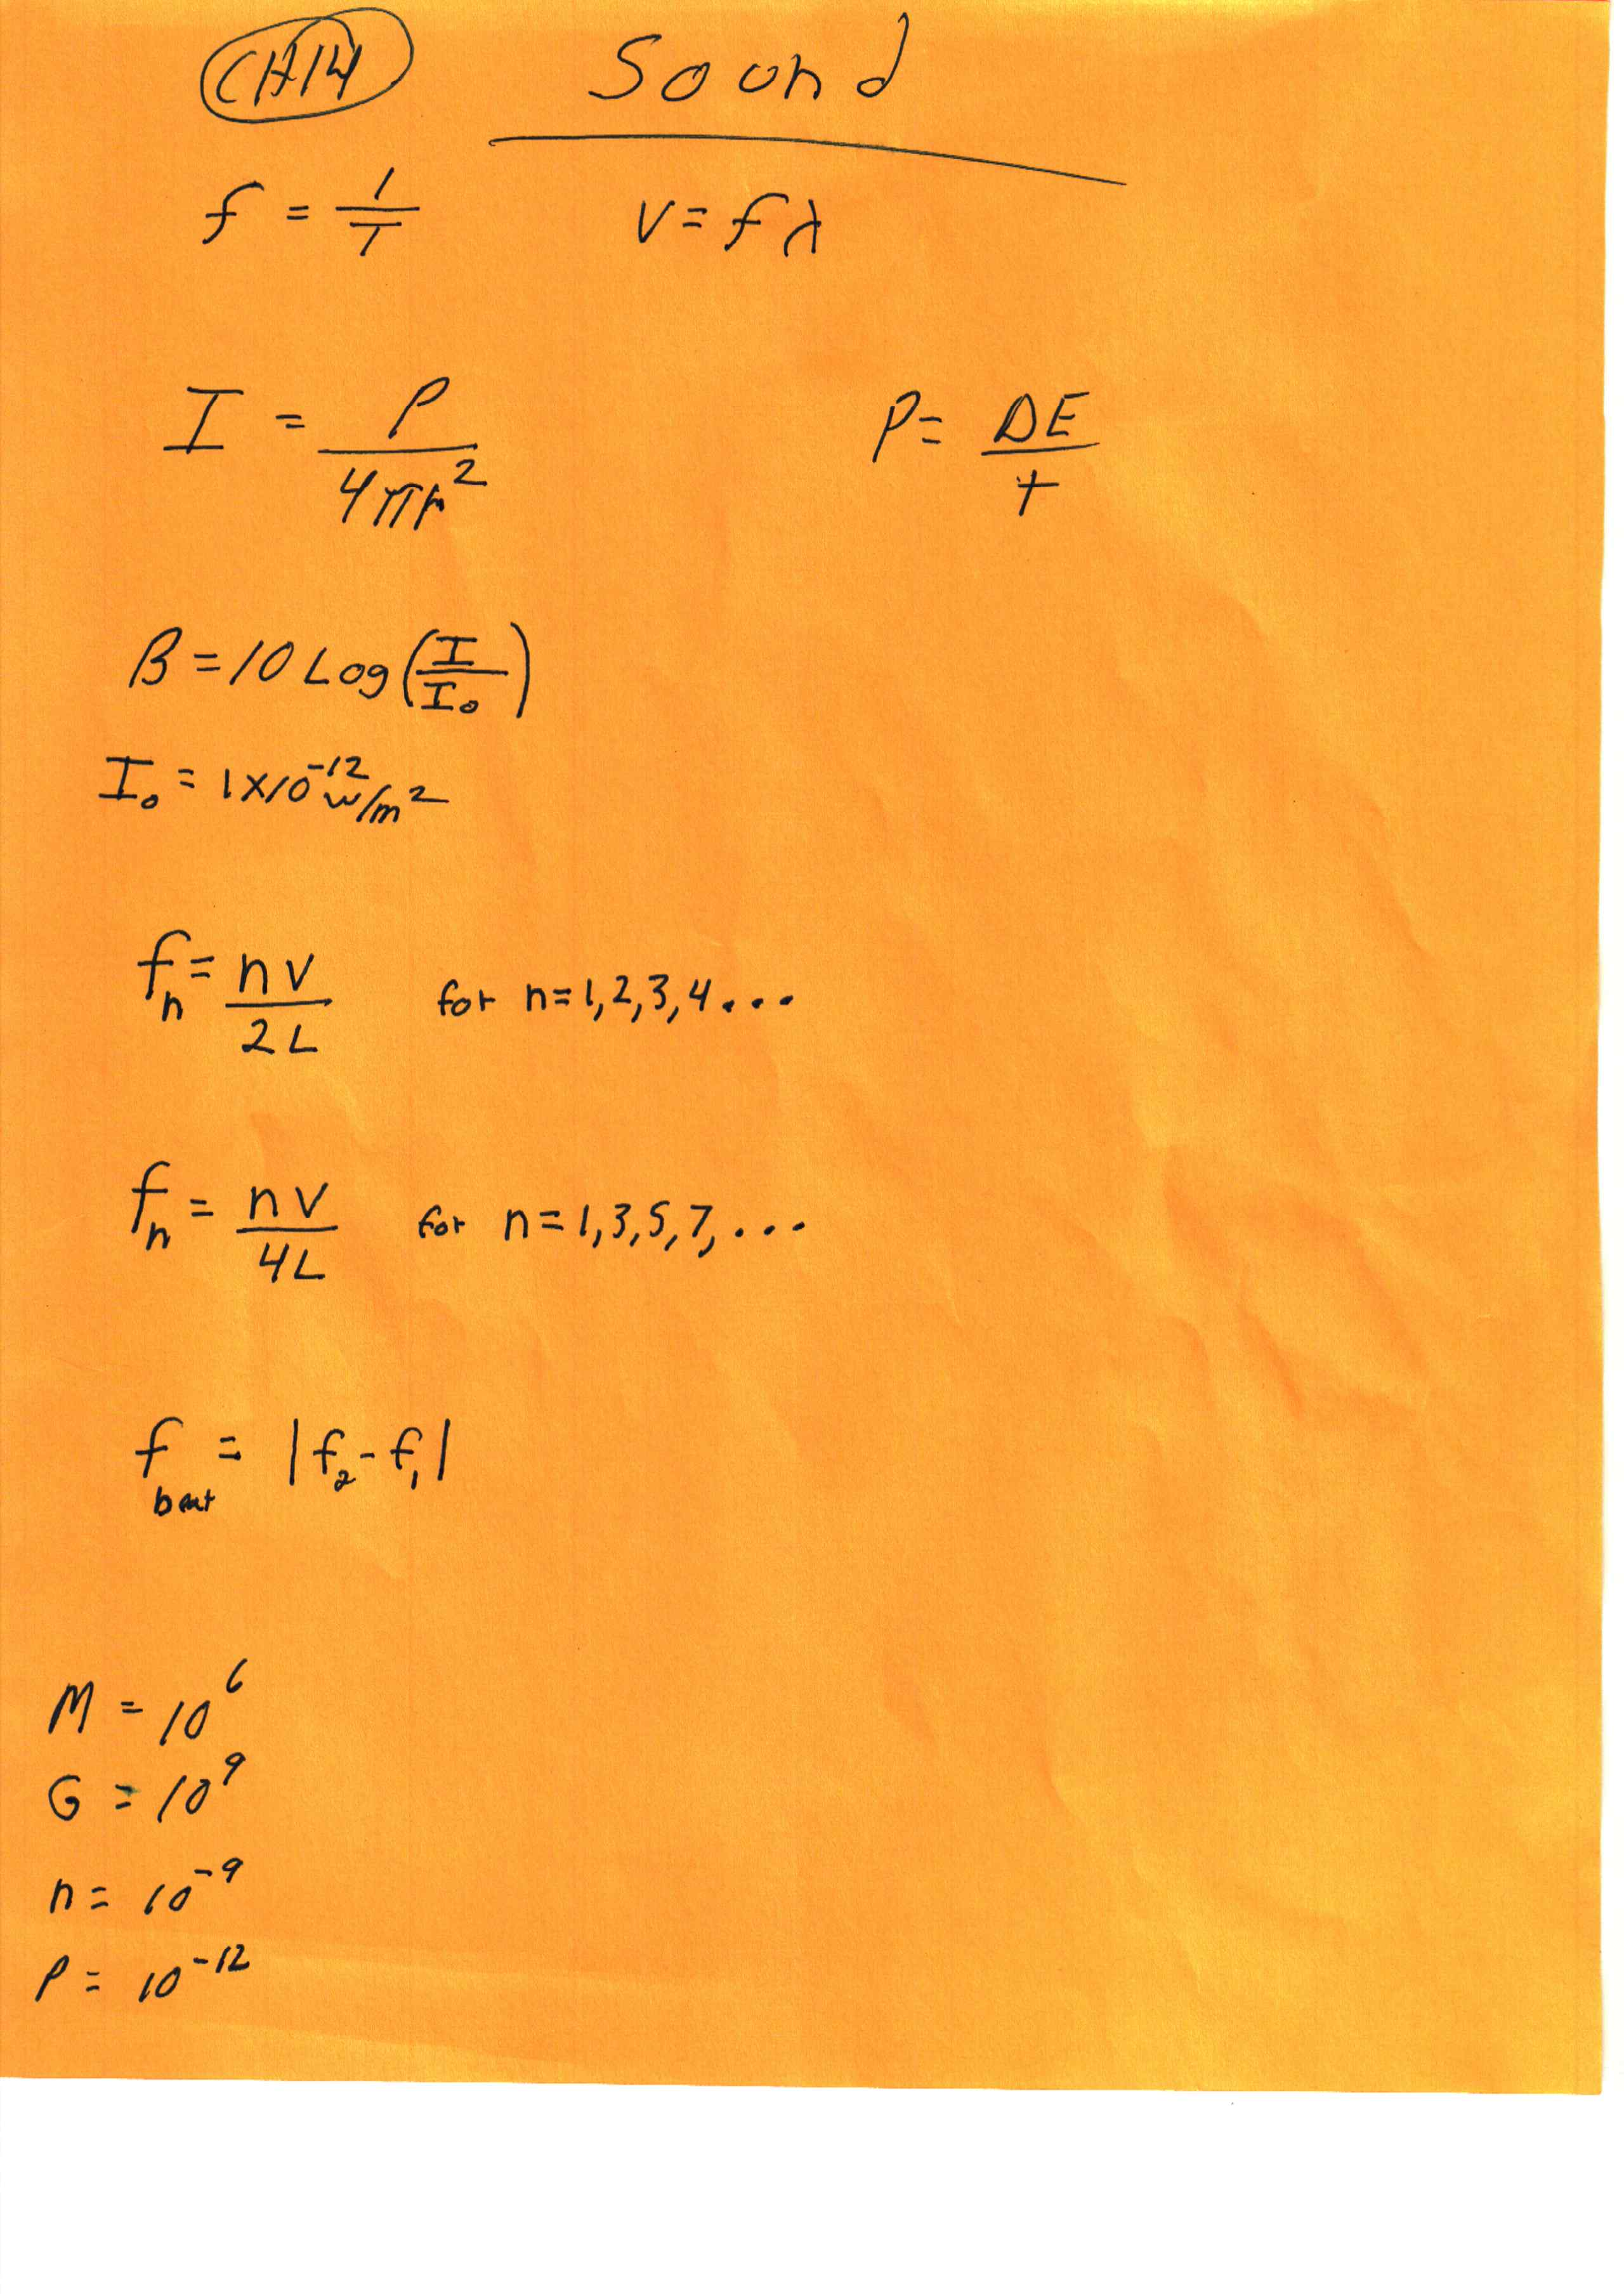 CH14 Sound
f = 1/T v = fλ
I = P/4πr² P = ΔE/t
β = 10 Log(I/I₀)
I₀ = 1X10⁻¹² W/m²
fₙ = nv/2L for n=1,2,3,4...
fₙ = nv/4L for n=1,3,5,7,...
f beat = |f₂-f₁|
M = 10⁶
G = 10⁹
n = 10⁻⁹
P = 10⁻¹²